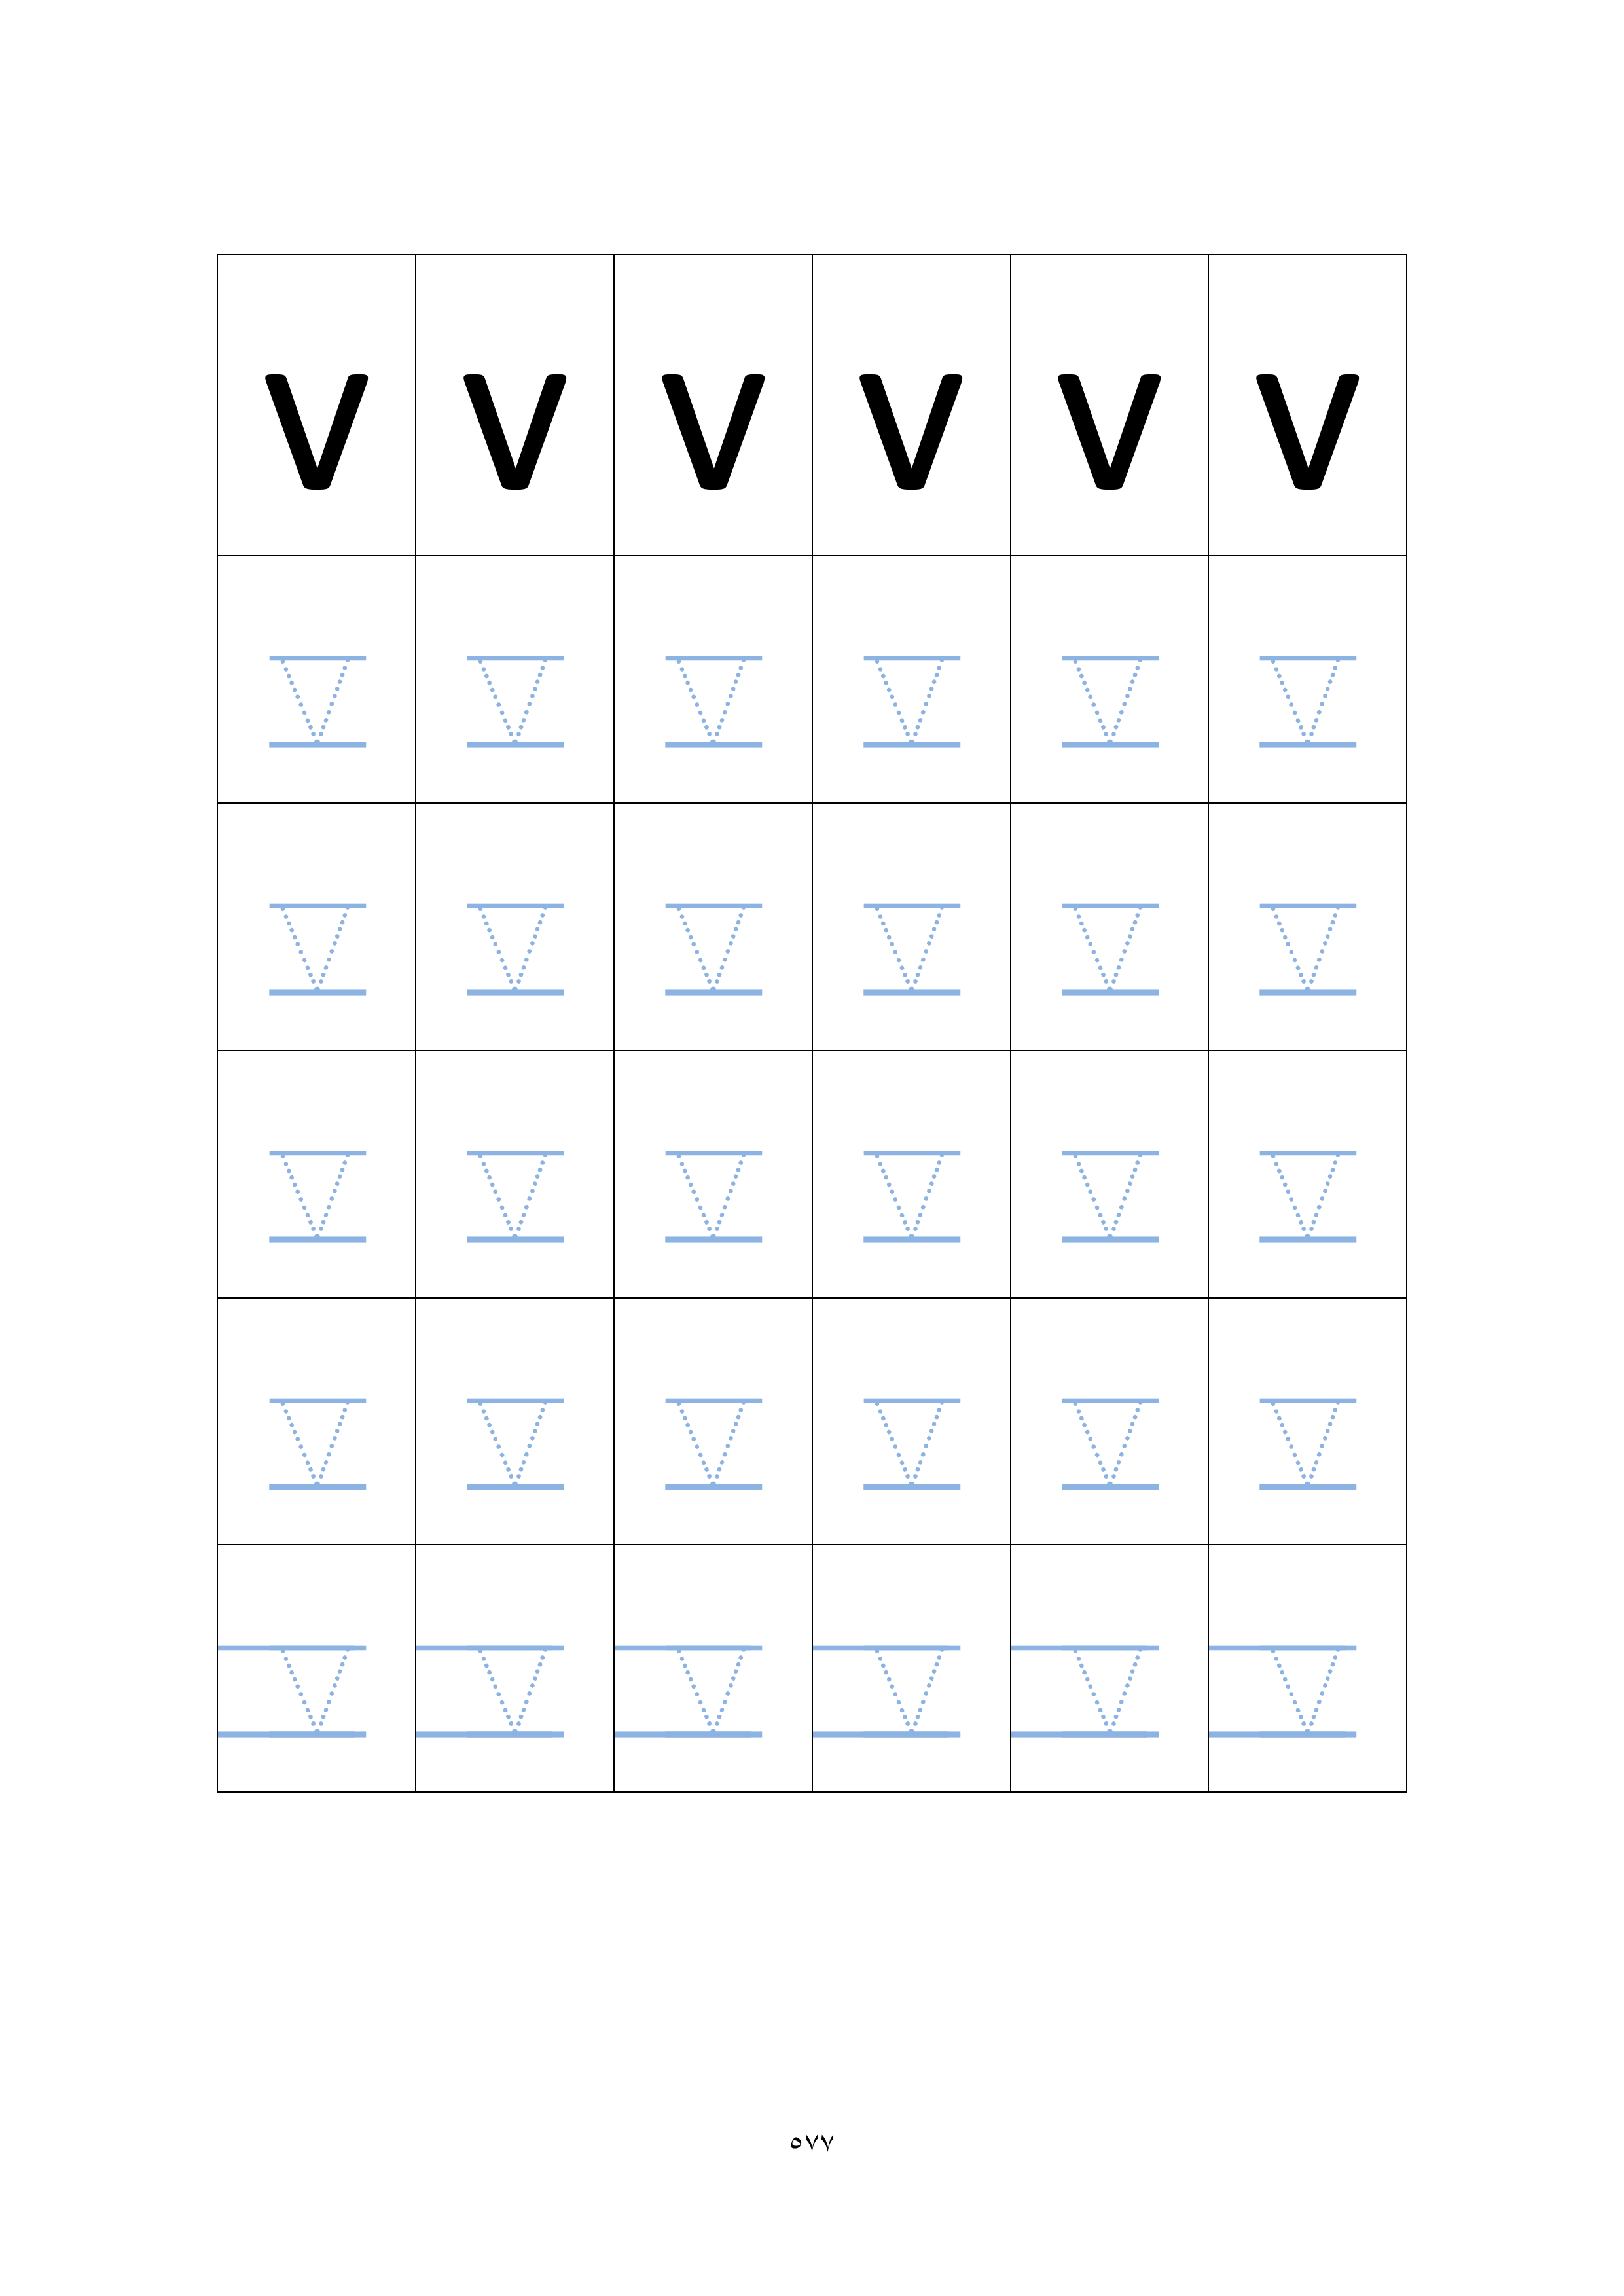 v v v v v v
v v v v v v
v v v v v v
v v v v v v
v v v v v v
v v v v v v
٥٧٧